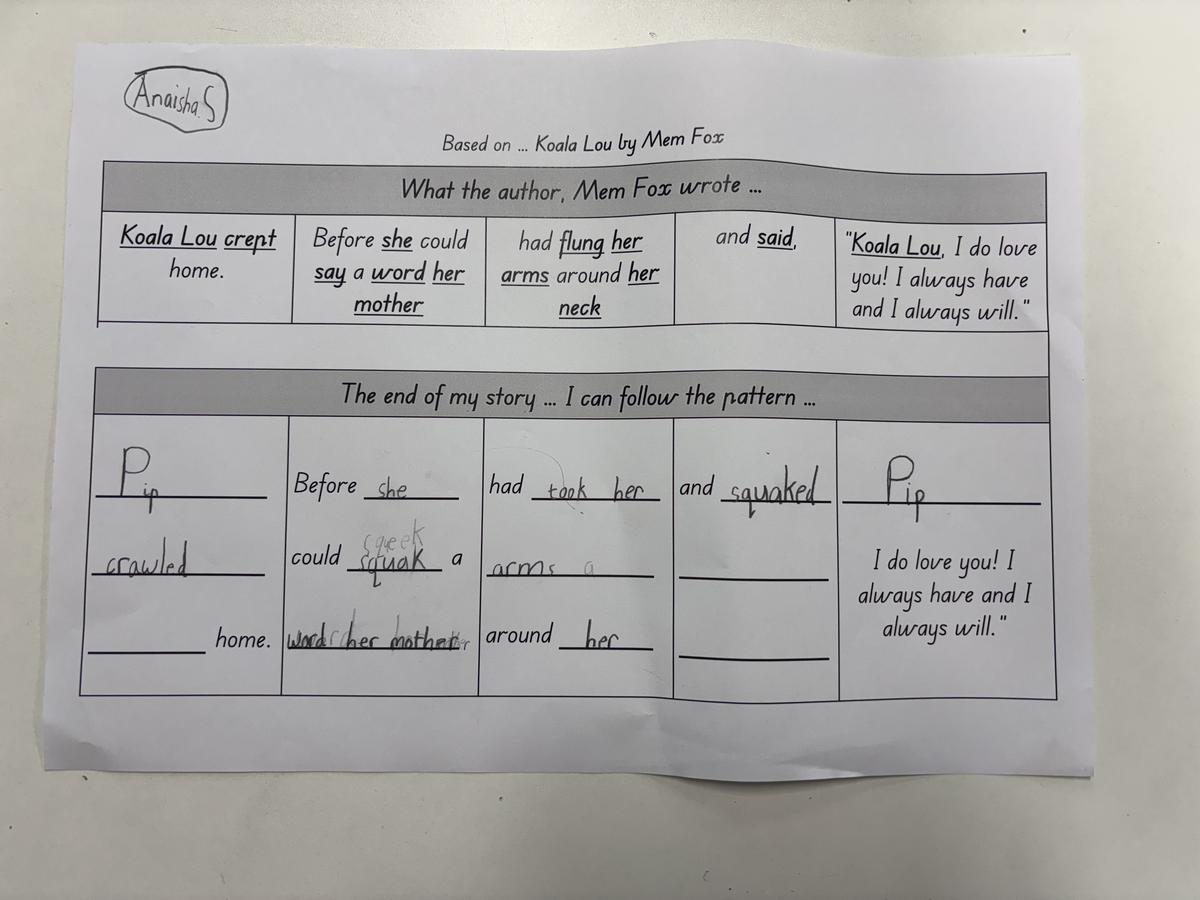 Anaisha.S
Based on ... Koala Lou by Mem Fox
What the author, Mem Fox wrote ...
Koala Lou crept
home.
Before she could
say a word her
mother
had flung her
arms around her
neck
and said,
"Koala Lou, I do love
you! I always have
and I always will."
The end of my story ... I can follow the pattern ...
Pip
crawled
home.
Before she
could squak a
word her mother
had took her
arms a
around her
and squaked
Pip
I do love you! I
always have and I
always will."